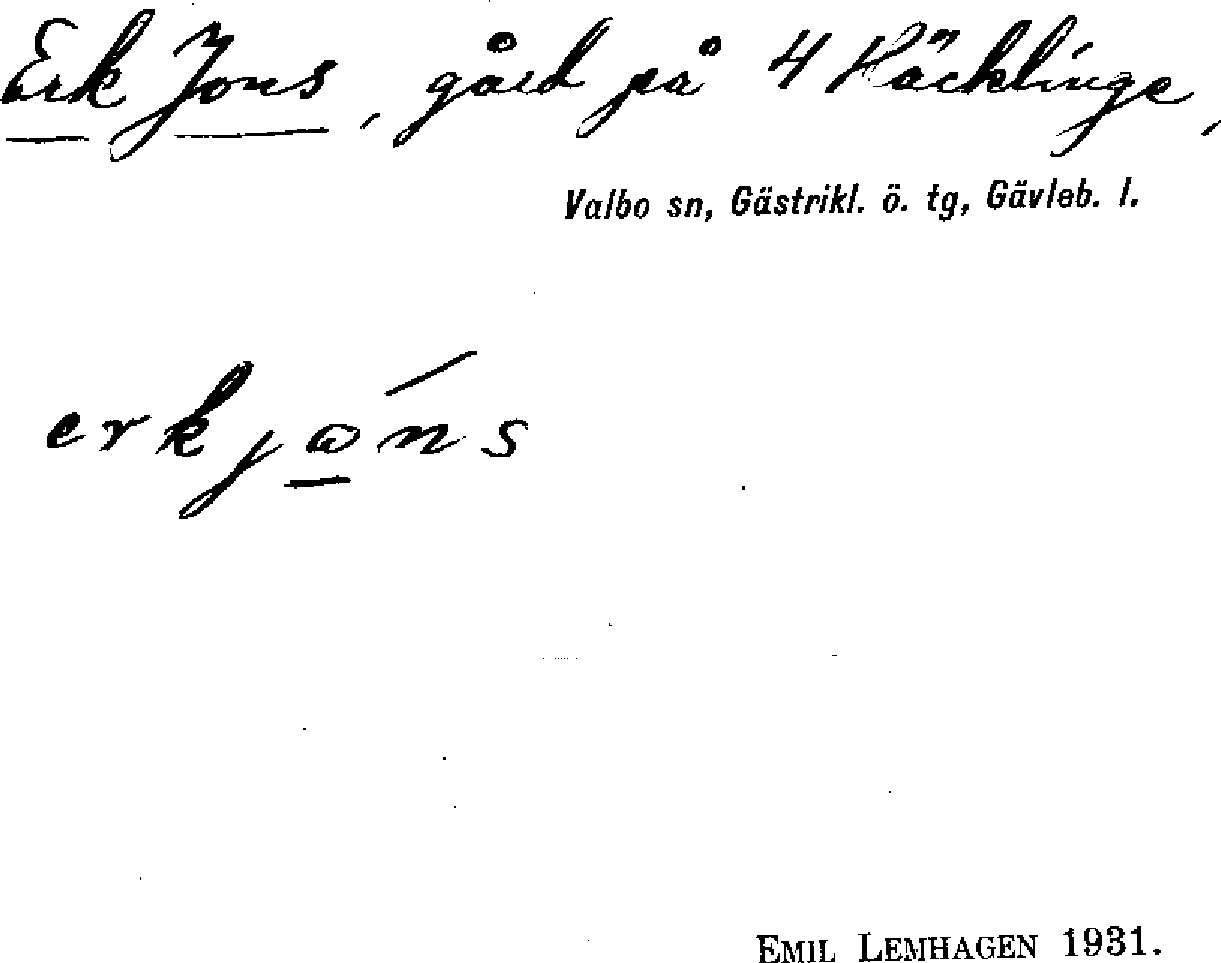 Erk Jons, gård på 4 Häcklinge,
Valbo sn, Gästrikl. ö. tg, Gävleb. l.
erkjώ̱ns
EMIL LEMHAGEN 1931.